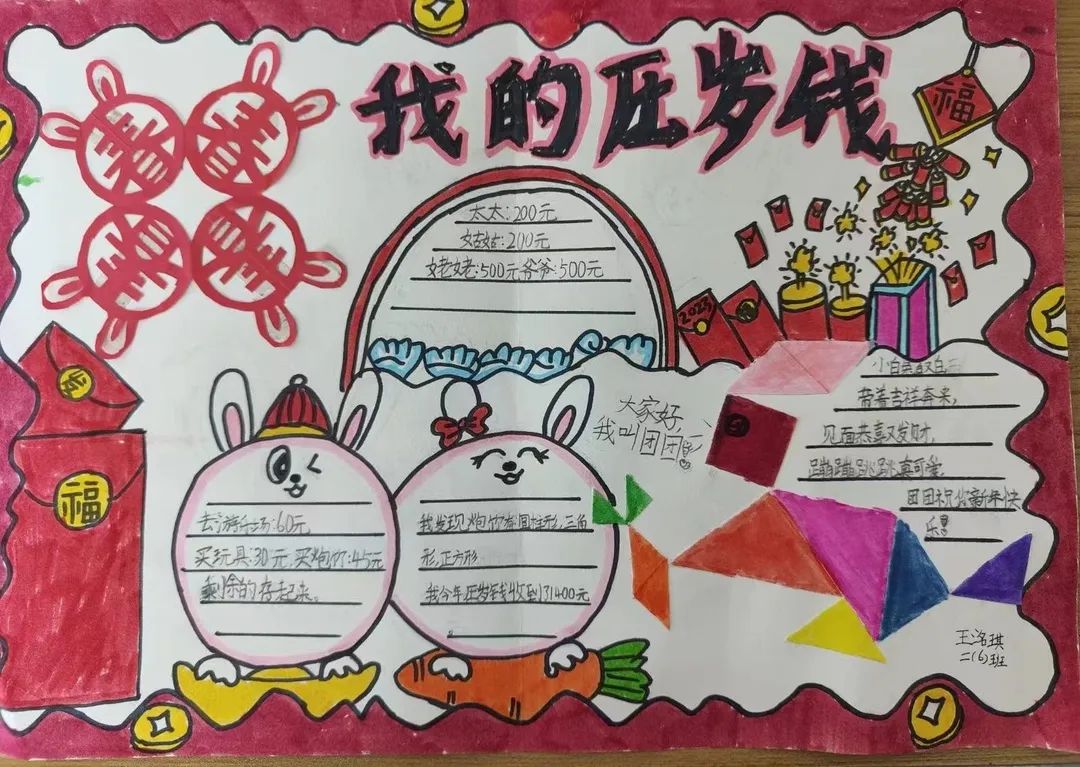 我的压岁钱
春
春
春
春
福
太太:200元
姑姑:200元
姥姥:500元爷爷:500元
2023
福
大家好,
我叫团团
带着吉祥奔来,
见面恭喜又发财,
蹦蹦跳跳真可爱
团团祝你新年快
乐!
去游乐场:60元
买玩具:30元,买炮仗:45元
剩余的存起来。
我发现炮仗有圆柱形,三角
形,正方形
我今年压岁钱收到了1400元
王洺琪
二(6)班